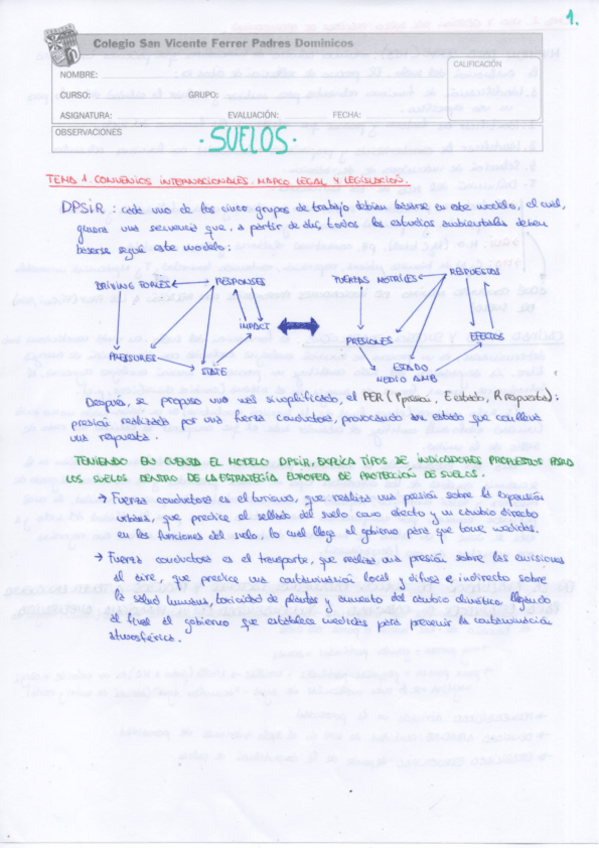 1.
Colegio San Vicente Ferrer Padres Dominicos
NOMBRE:
CALIFICACIÓN
CURSO: GRUPO:
ASIGNATURA: EVALUACIÓN: FECHA:
OBSERVACIONES
· SUELOS ·
TEMA 1. CONVENIOS INTERNACIONALES. MARCO LEGAL Y LEGISLACIÓN.
DPSIR: cada uno de los cinco grupos de trabajo debían basarse en este modelo, el cual,
genera una secuencia que, a partir de ella, todos los estudios ambientales deben
basarse según este modelo:
DRIVING FORCES RESPONSES
IMPACT
PRESSURES
STATE
FUERZAS MOTRICES RESPUESTAS
PRESIONES EFECTOS
ESTADO
MEDIO AMB
Después, se propuso uno más simplificado, el PER (Presión, Estado, Respuesta):
presión realizada por una fuerza conductora, provocando un estado que conlleva
una respuesta.
TENIENDO EN CUENTA EL MODELO DPSIR, EXPLICA TIPOS DE INDICADORES PROPUESTOS PARA
LOS SUELOS DENTRO DE LA ESTRATEGIA EUROPEA DE PROTECCIÓN DE SUELOS.
→ Fuerza conductora es el turismo, que realiza una presión sobre la expansión
urbana, que predice el sellado del suelo como efecto y un cambio directo
en las funciones del suelo, lo cual llega al gobierno para que tome medidas.
→ Fuerza conductora es el transporte, que realiza una presión sobre las emisiones
al aire, que predice una contaminación local y difusa e indirecto sobre
la salud humana, toxicidad de plantas y aumento del cambio climático llegando
al final al gobierno que establece medidas para prevenir la contaminación
atmosférica.